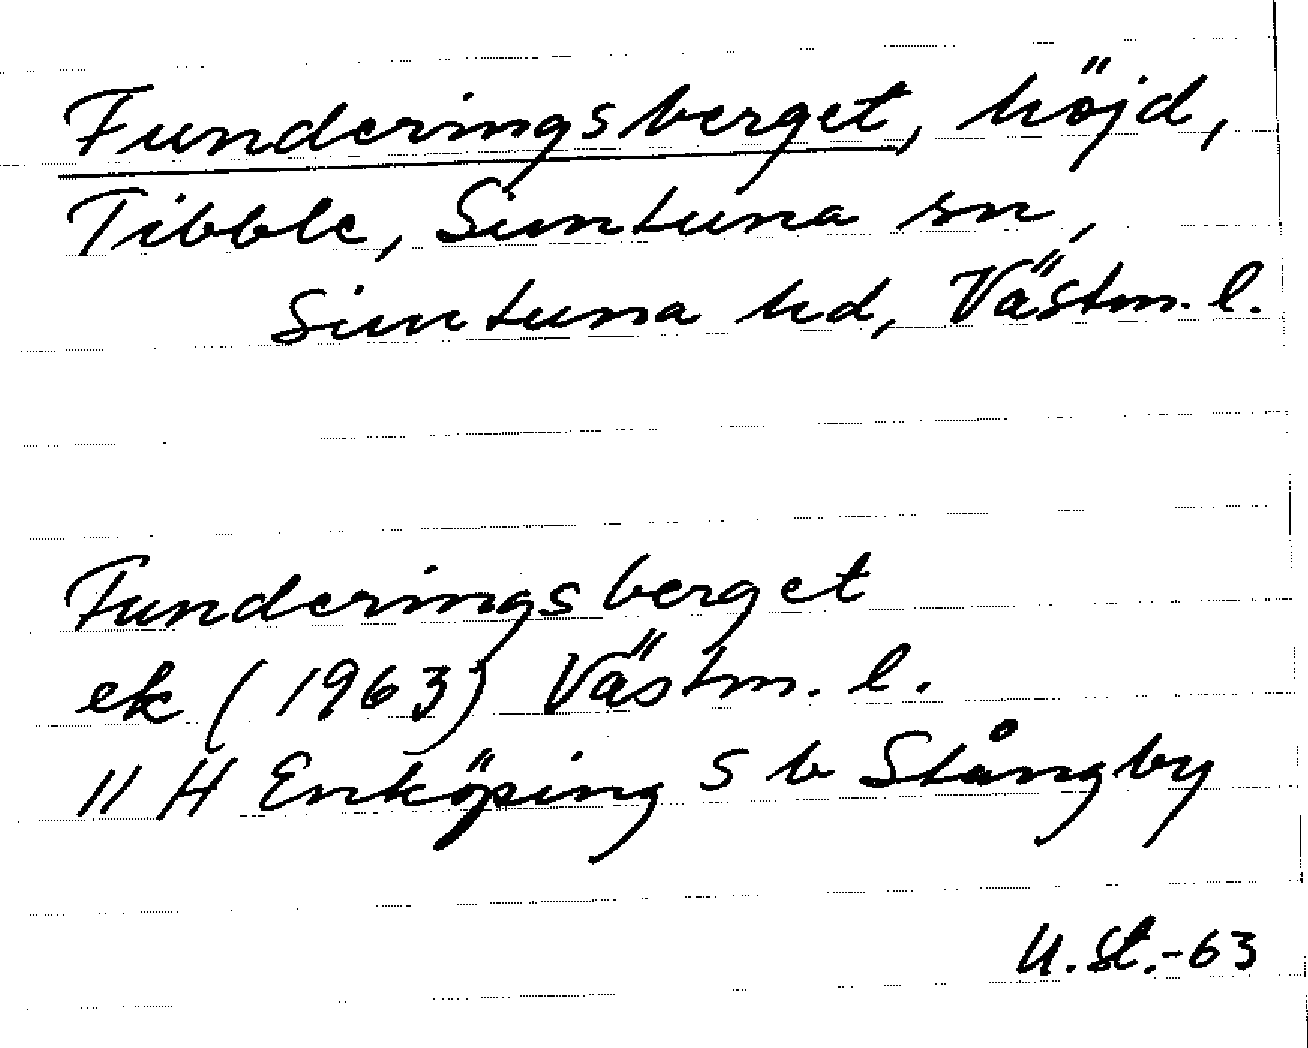 Funderingsberget, höjd,
Tibble, Simtuna sn,
Simtuna hd, Västm. l.
Funderingsberget
ek (1963) Västm. l.
11 H Enköping S b Stångby
U.St.-63